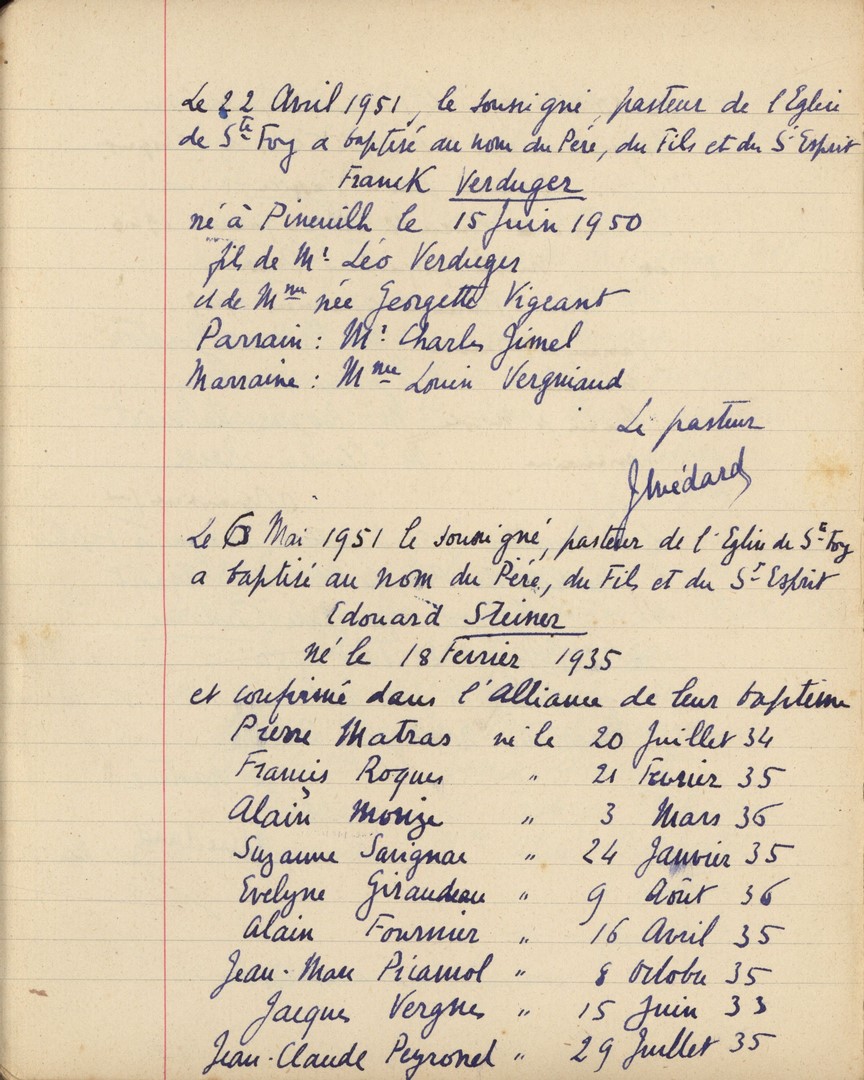 Le 22 Avril 1951, le soussigné, pasteur de l'Eglise
de Ste Foy a baptisé au nom du Père, du Fils et du St Esprit
Franck Verduger
né à Pineuilh le 15 Juin 1950
fils de Mr Léo Verduger
et de Mme née Georgette Vigeant
Parrain : Mr Charles Jimel
Marraine : Mme Louis Vergniaud
Le pasteur
Le 6 Mai 1951 le soussigné, pasteur de l'Eglise de Ste Foy
a baptisé au nom du Père, du Fils et du St Esprit
Edouard Steiner
né le 18 Février 1935
et confirmé dans l'Alliance de leur baptême
Pierre Matras né le 20 Juillet 34
Francis Roques " 21 Février 35
Alain Monze " 3 Mars 36
Suzanne Savignac " 24 Janvier 35
Evelyne Giraudeau " 9 Août 36
Alain Fournier " 16 Avril 35
Jean-Marc Picamol " 8 Octobre 35
Jacques Vergnes " 15 Juin 33
Jean-Claude Peyronel " 29 Juillet 35